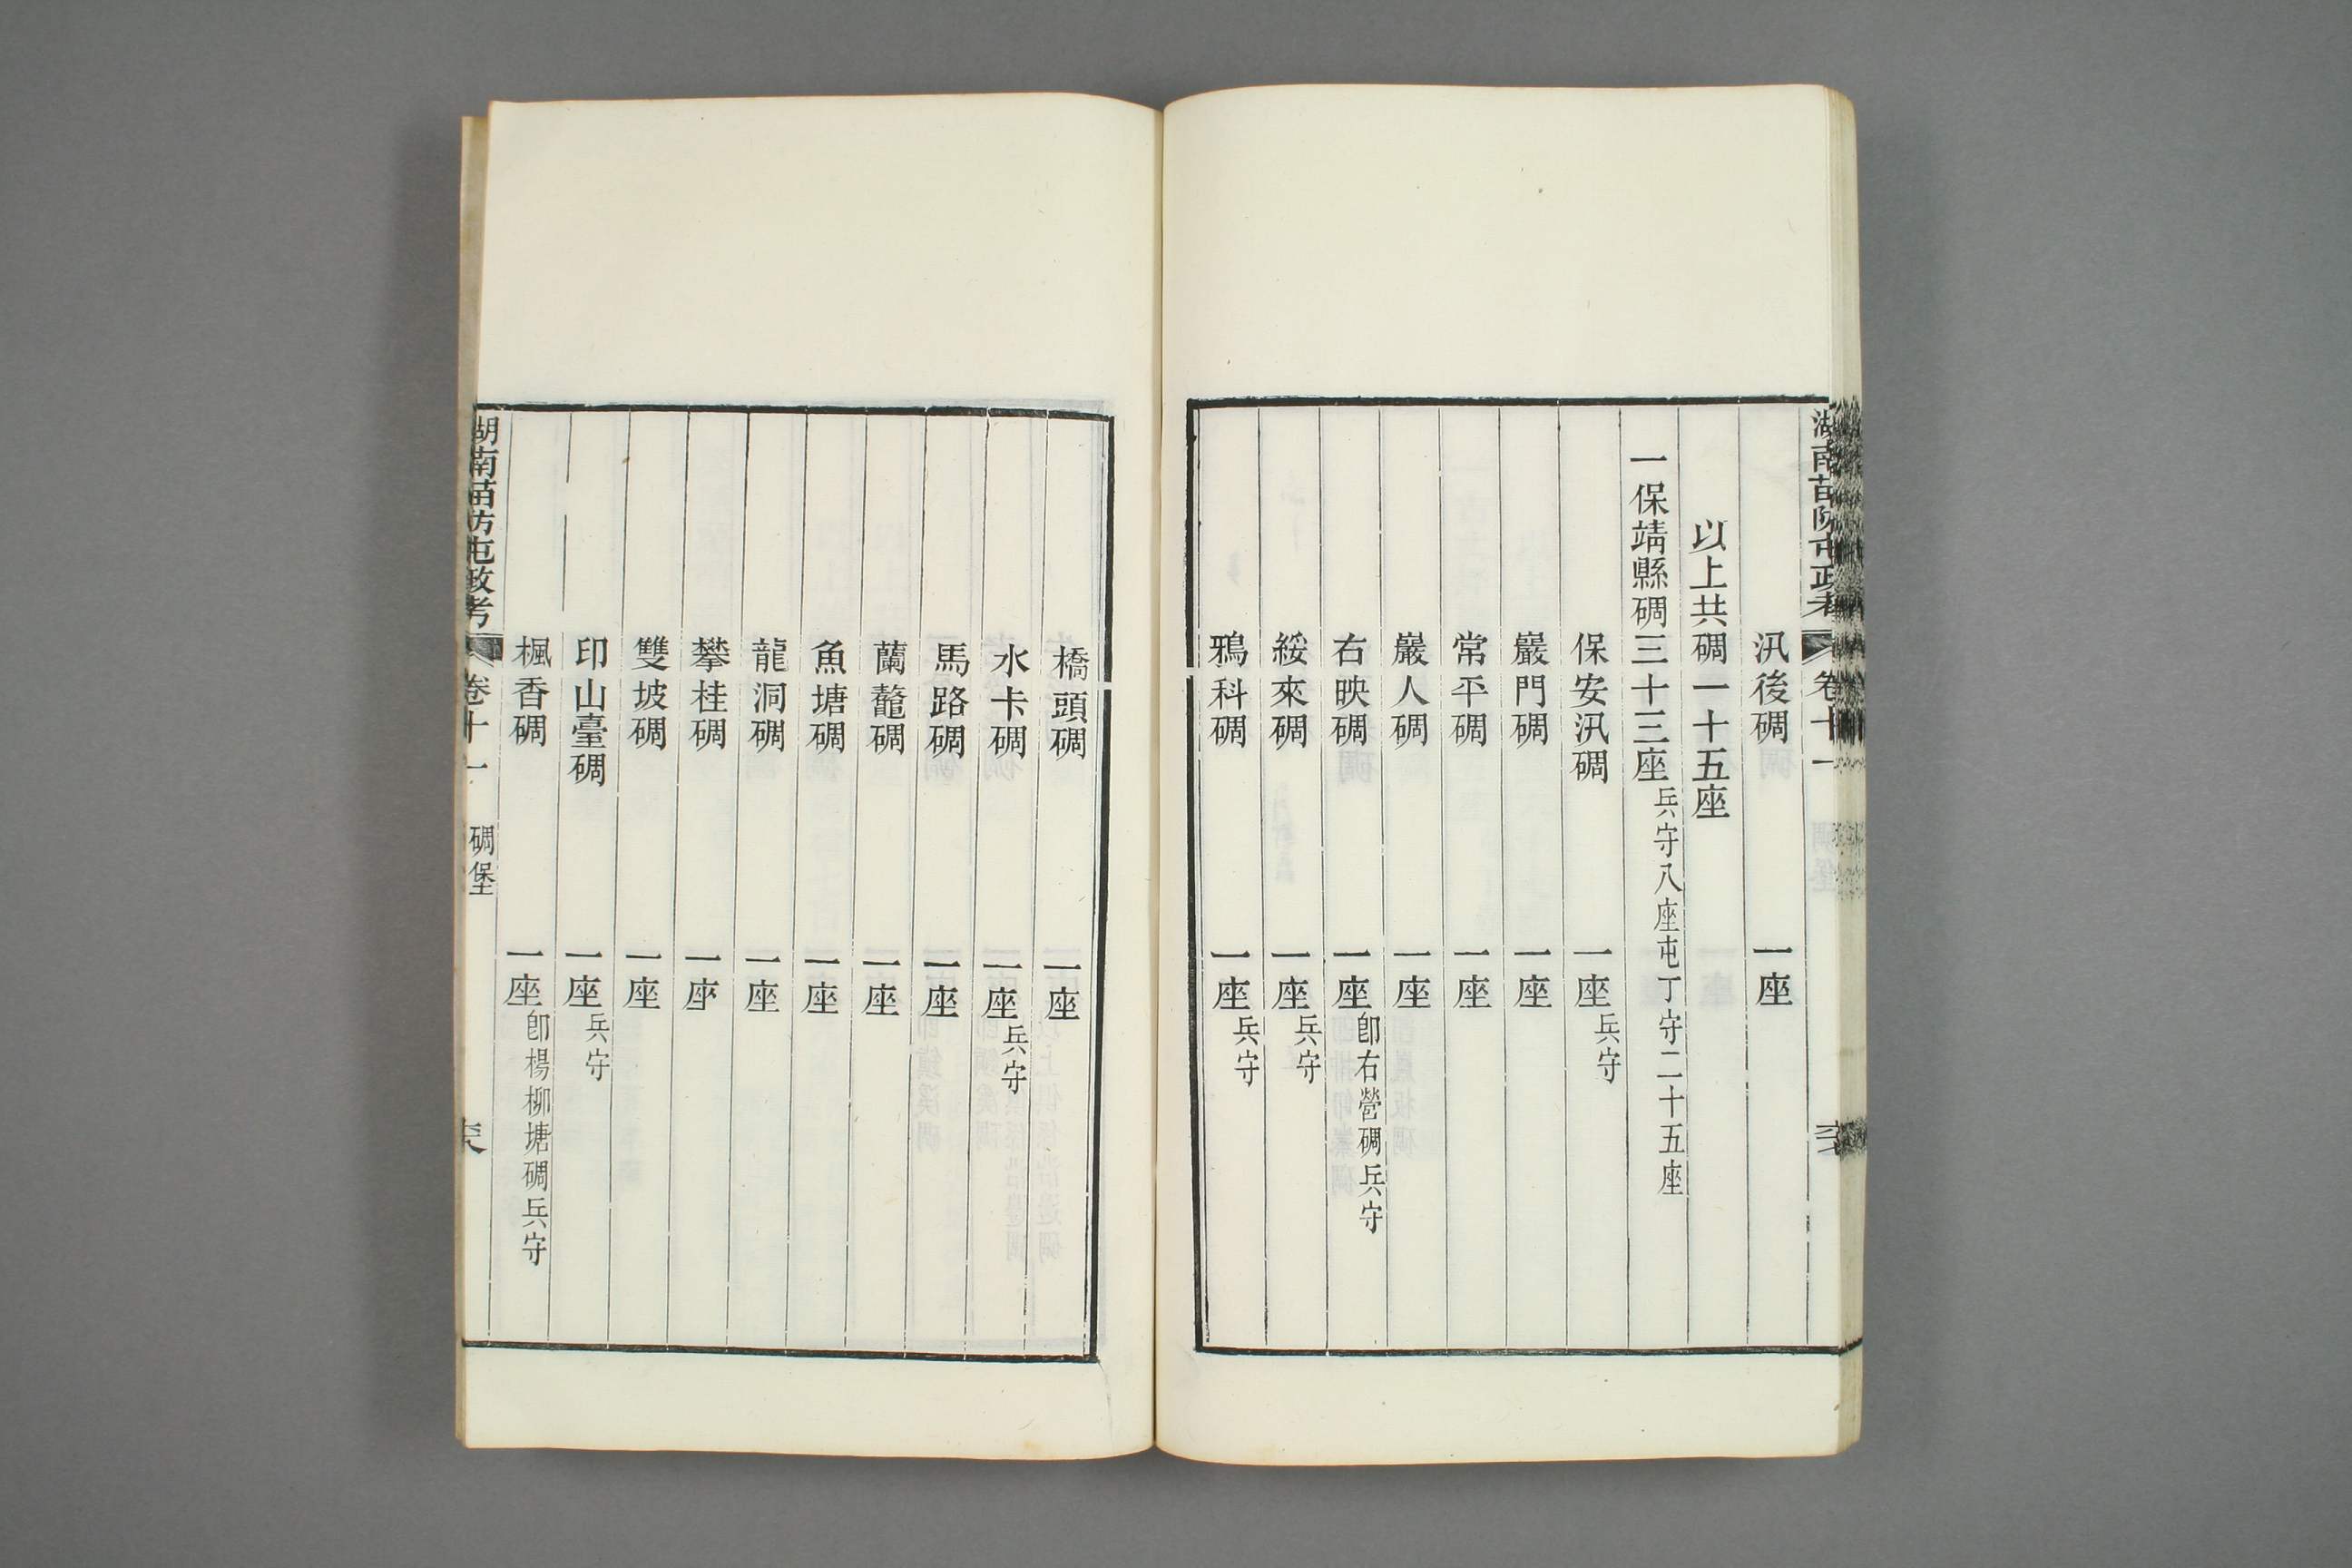 汛後碉　一座
以上共碉一十五座
一保靖縣碉三十三座兵守八座屯丁守二十五座
保安汛碉　一座兵守
巖門碉　一座
常平碉　一座
巖人碉　一座
右映碉　一座卽右營碉兵守
綏來碉　一座兵守
鴉科碉　一座兵守
橋頭碉　一座
水卡碉　一座兵守
馬路碉　一座
蘭鼇碉　一座
魚塘碉　一座
龍洞碉　一座
攀桂碉　一座
雙坡碉　一座
印山臺碉　一座兵守
楓香碉　一座卽楊柳塘碉兵守
湖南苗防屯政考　卷十一　碉堡